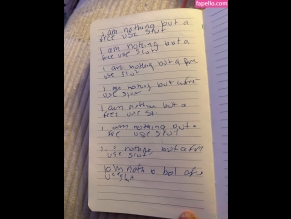 fapello.com
I am nothing but a
free use slut
I am nothing but a
free use slut
I am nothing but a free
use slut
I am nothing but a free
use slut
I am nothing but a
free use slut
I am nothing but a
free use slut
I nothing but a free
use slut
I'm a
use slut